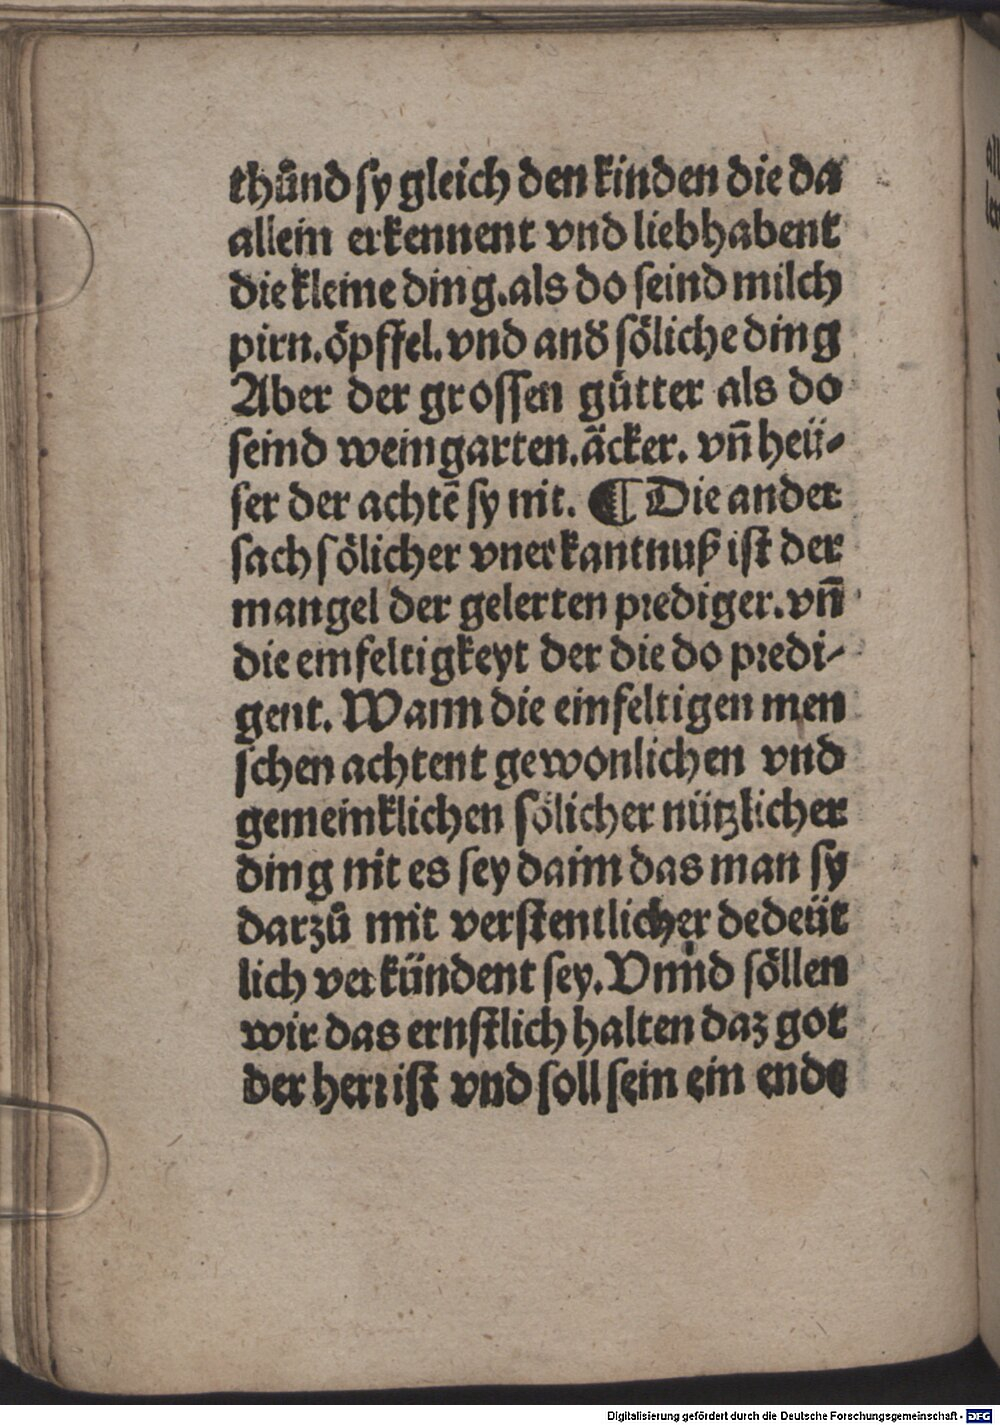 thůnd sy gleich den kinden die da
allein erkennent vnd liebhabent
die kleine ding. als do seind milch
pirn. öpffel. vnd and̾ söliche ding
Aber der grossen gütter als do
seind weingarten. äcker. vn̄ heü-
ser der achtē sy nit. ¶ Die ander
sach sölicher vnerkantnuß ist der
mangel der gelerten prediger. vn̄
die einfeltigkeyt der die do predi-
gent. Wann die einfeltigen men
schen achtent gewonlichen vnd
gemeinklichen sölicher nützlicher
ding nit es sey dann das man sy
darzů mit verstentlicher dedeüt
lich verkündent sey. Vnnd söllen
wir das ernstlich halten daz got
der herr ist vnd soll sein ein ende
Digitalisierung gefördert durch die Deutsche Forschungsgemeinschaft - DFG